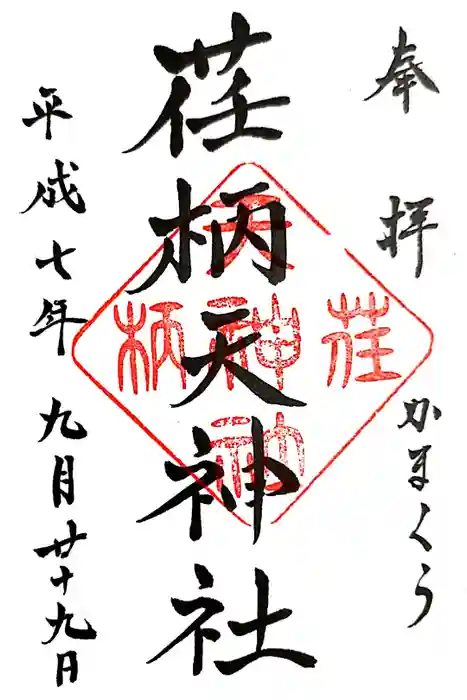 奉拝 かまくら
荏柄天神社
平成七年九月廿十九日
荏
柄
神